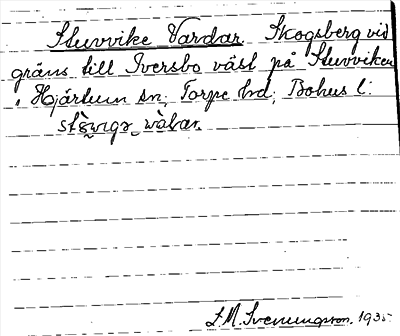 Stuvvike Vardar. Skogsberg vid
gräns till Iversbo väst på Stuvviken
i Hjärtum sn, Torpe hd, Bohus l.
L.M. Svenungsson. 1935